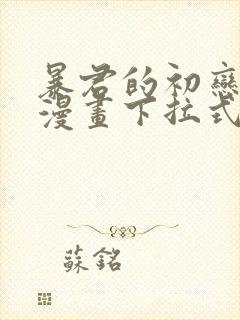 暴君的初戀
漫畫下拉式
蘇銘